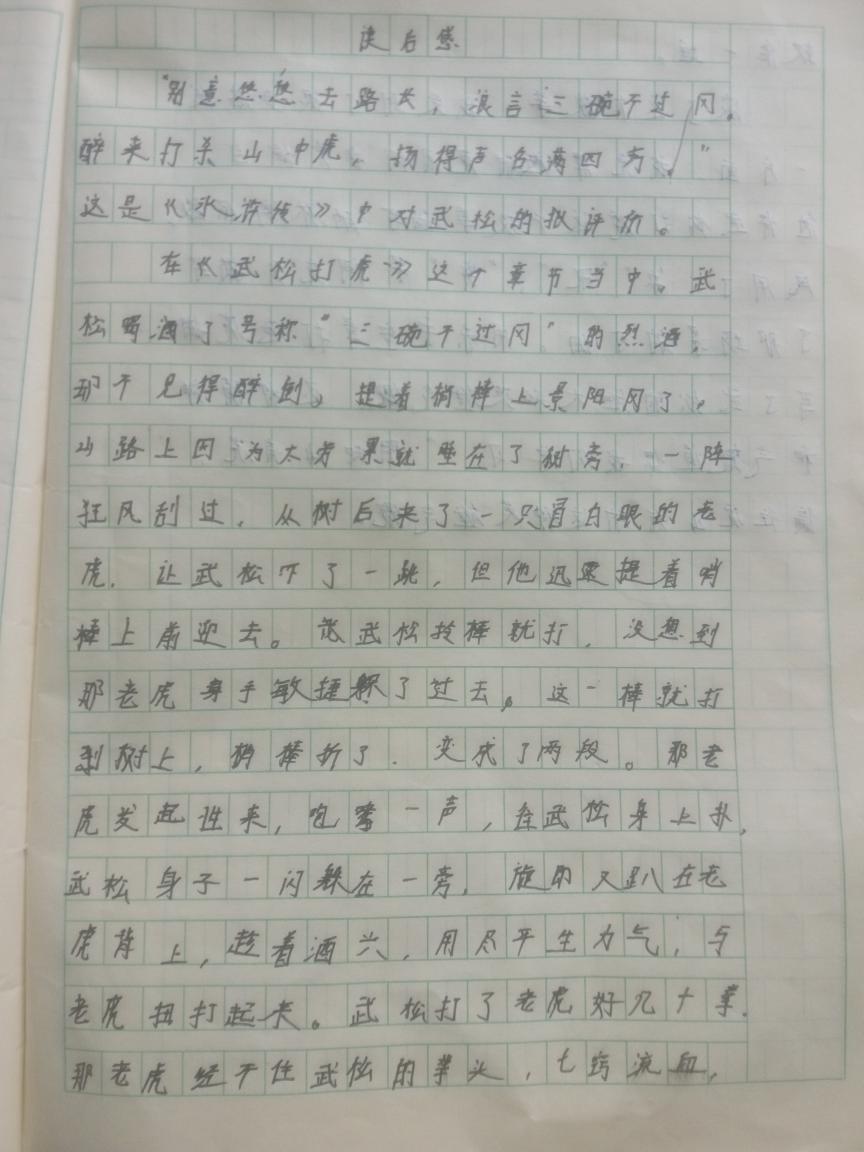 读后感
“别意悠悠去路长，浪言三碗不过冈。
醉来打杀山中虎，扬得声名满四方。”
这是《水浒传》中对武松的批评价。
在《武松打虎》这个章节当中。武
松喝酒了号称“三碗不过冈”的烈酒，
却不见得醉倒，提着梢棒上景阳冈了，
山路上因为太劳累就坐在了树旁，一阵
狂风刮过，从树后来了一只冒白眼的老
虎，让武松吓了一跳，但他迅速提着哨
棒上前迎去。武松技棒就打，没想到
那老虎身手敏捷躲了过去，这一棒就打
到树上，梢棒折了．变成了两段。那老
虎发起性来，咆哮一声，往武松身上扑，
武松身子一闪躲在一旁，旋即又趴在老
虎背上，趁着酒兴，用尽平生力气，与
老虎扭打起来。武松打了老虎好几十拳．
那老虎经不住武松的拳头，七窍流血，